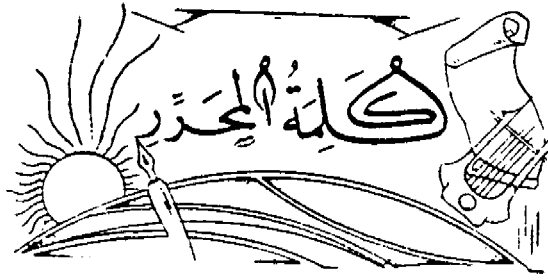 كَلِمَةُ المُحَرِّرِ